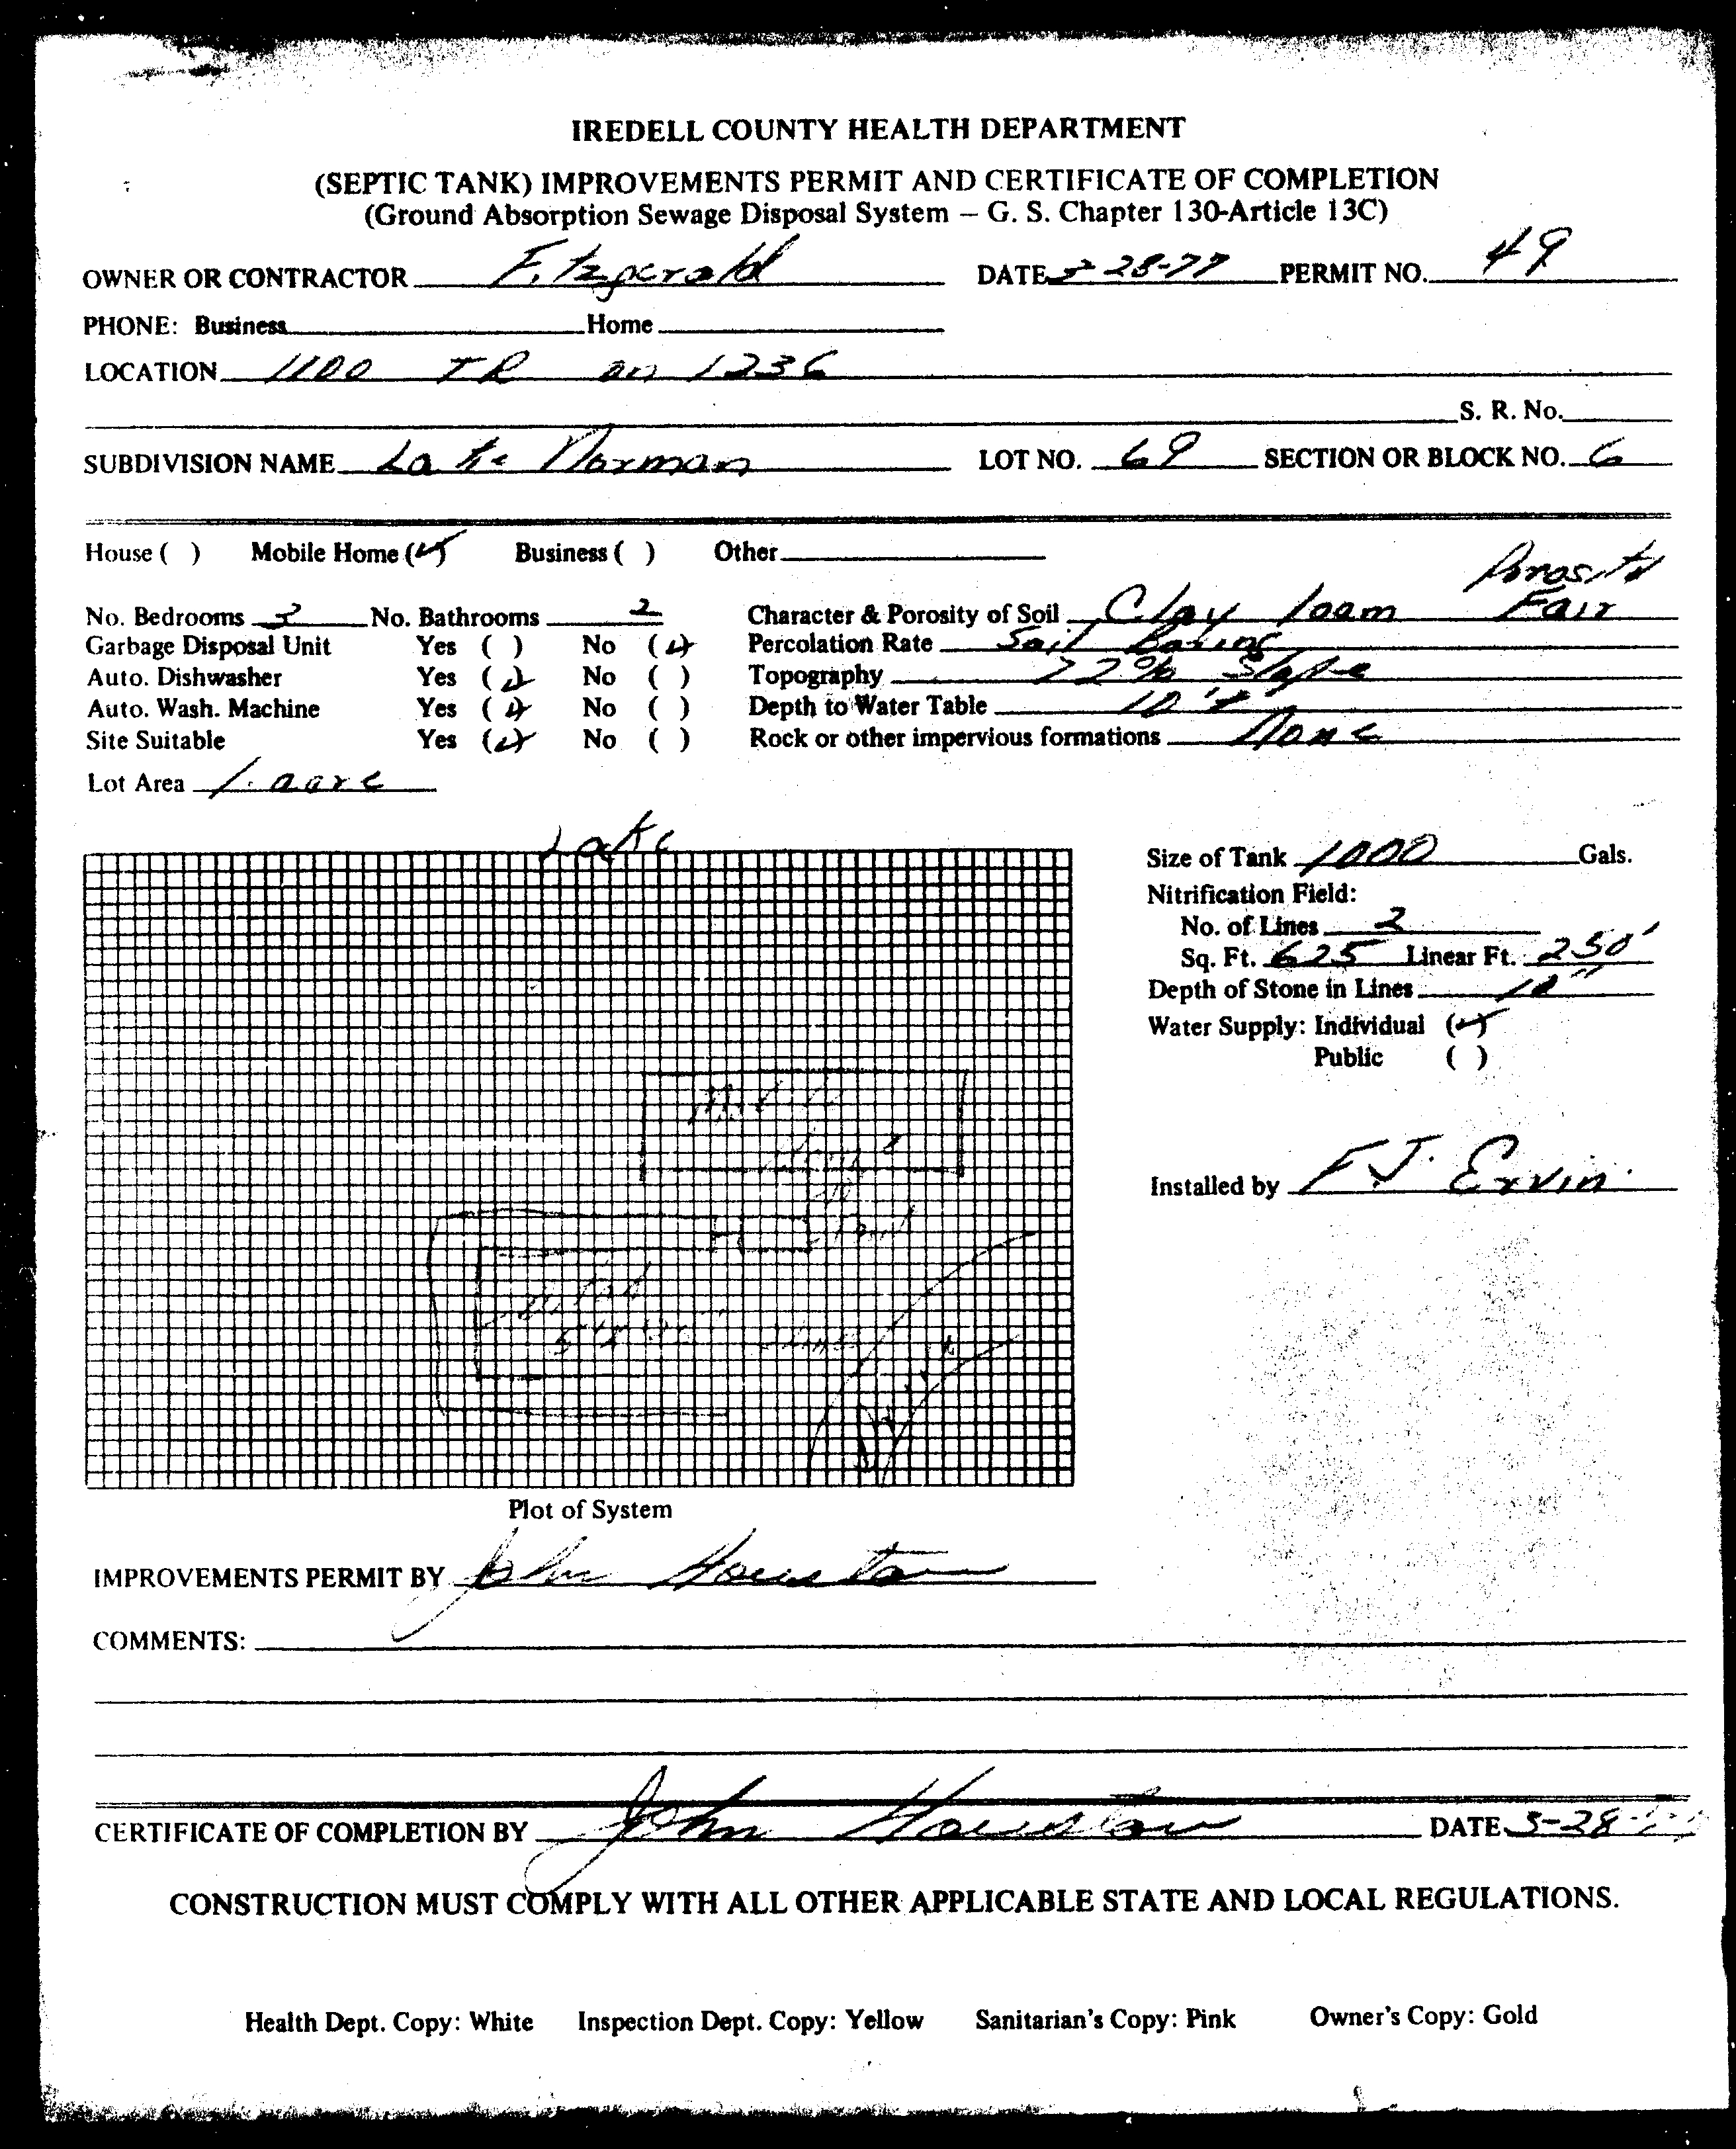 IREDELL COUNTY HEALTH DEPARTMENT
(SEPTIC TANK) IMPROVEMENTS PERMIT AND CERTIFICATE OF COMPLETION
(Ground Absorption Sewage Disposal System – G. S. Chapter 130-Article 13C)
OWNER OR CONTRACTOR Fitzgerald DATE 28-77 PERMIT NO. 49
PHONE: Business Home
LOCATION 1100 TR on 1236
S. R. No.
SUBDIVISION NAME Lake Norman LOT NO. 69 SECTION OR BLOCK NO. 6
House ( ) Mobile Home (✓) Business ( ) Other
Porosity
No. Bedrooms 3 No. Bathrooms 2 Character & Porosity of Soil Clay loam Fair
Garbage Disposal Unit Yes ( ) No (✓) Percolation Rate Soil Rating
Auto. Dishwasher Yes (✓) No ( ) Topography 22% Slope
Auto. Wash. Machine Yes (✓) No ( ) Depth to Water Table 10'+
Site Suitable Yes (✓) No ( ) Rock or other impervious formations None
Lot Area 1. acre
Lake
Size of Tank 1000 Gals.
Nitrification Field:
No. of Lines 2
Sq. Ft. 625 Linear Ft. 250'
Depth of Stone in Lines
Water Supply: Individual (✓)
Public ( )
Installed by F.J. Ervin
Plot of System
IMPROVEMENTS PERMIT BY John Houston
COMMENTS:
CERTIFICATE OF COMPLETION BY John Houston DATE
CONSTRUCTION MUST COMPLY WITH ALL OTHER APPLICABLE STATE AND LOCAL REGULATIONS.
Health Dept. Copy: White Inspection Dept. Copy: Yellow Sanitarian's Copy: Pink Owner's Copy: Gold